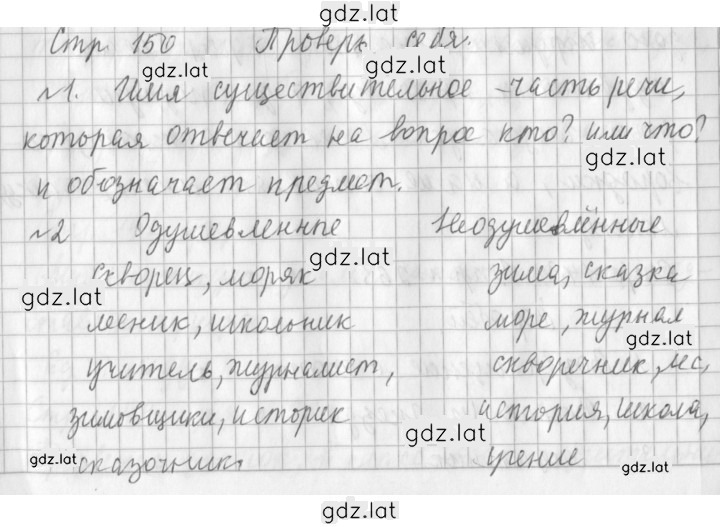 gdz.lat
Стр. 150 Проверь себя.
gdz.lat gdz.lat
№1. Имя существительное - часть речи,
которая отвечает на вопрос кто? или что?
gdz.lat
и обозначает предмет.
№2 Одушевленные Неодушевлённые
gdz.lat
скворец, моряк зима, сказка
gdz.lat
лесник, школьник море, журнал
gdz.lat
учитель, журналист, скворечник, лес,
зимовщики, историк история, школа,
gdz.lat
сказочник. учение
gdz.lat gdz.lat
gdz.lat